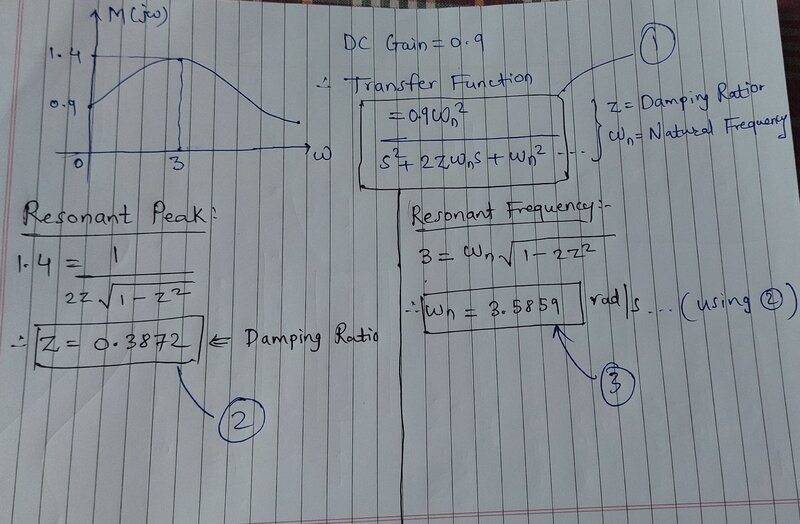 M(jω)
1.4
0.9
0
3
ω
DC Gain = 0.9
①
∴ Transfer Function
= 0.9ωn²
s² + 2zωns + ωn² ....
z = Damping Ratior
ωn = Natural Frequency
Resonant Peak:
1.4 = 1
2z√1-z²
∴ z = 0.3872 ← Damping Ratio
②
Resonant Frequency:-
3 = ωn√1-2z²
∴ ωn = 3.5859 rad/s ... (using ②)
③